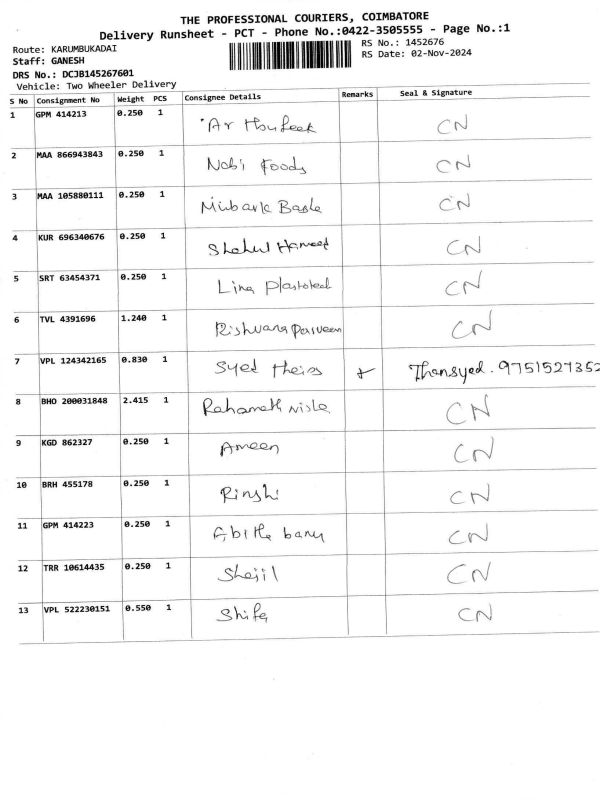 THE PROFESSIONAL COURIERS, COIMBATORE
Delivery Runsheet - PCT - Phone No.:0422-3505555 - Page No.:1
Route: KARUMBUKADAI RS No.: 1452676
Staff: GANESH RS Date: 02-Nov-2024
DRS No.: DCJB145267601
Vehicle: Two Wheeler Delivery
S No Consignment No Weight PCS Consignee Details Remarks Seal & Signature
1 GPM 414213 0.250 1 CN
2 MAA 866943843 0.250 1 Nobi Foods CN
3 MAA 105880111 0.250 1 CN
4 KUR 696340676 0.250 1 Shahul Hameed CN
5 SRT 63454371 0.250 1 CN
6 TVL 4391696 1.240 1 Rishwana Parveen CN
7 VPL 124342165 0.830 1 Syed Thansyed. 9751527352
8 BHO 200031848 2.415 1 CN
9 KGD 862327 0.250 1 Ameen CN
10 BRH 455178 0.250 1 Rinshi CN
11 GPM 414223 0.250 1 banu CN
12 TRR 10614435 0.250 1 CN
13 VPL 522230151 0.550 1 Shifa CN